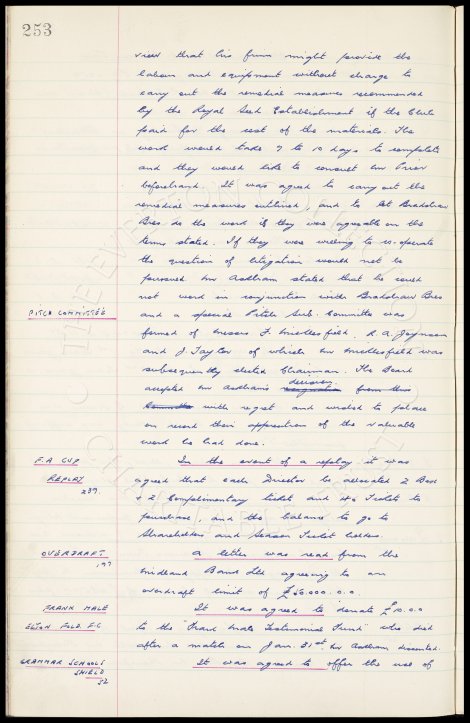 253
view that his firm might provide the
labour and equipment without charge to
carry out the remedial measures recommended
by the Royal Seed Establishment if the Club
paid for the cost of the materials. The
work would take 7 to 10 days to complete
and they would like to consult Mr Prior
beforehand. It was agreed to carry out the
remedial measures outlined, and to let Bradshaw
Bros do the work if they were agreeable on the
terms stated. If they were willing to co-operate
the question of litigation would not be
pursued Mr Askham stated that he could
not work in conjunction with Bradshaw Bros
PITCH COMMITTEE
and a special Pitch Sub. Committee was
formed of Messrs F. Micklesfield, R. A. Joynson
and J. Taylor of which Mr Micklesfield was
subsequently elected Chairman. The Board
accepted Mr Askham's resignation decision from this
Committee with regret and wished to place
on record their appreciation of the valuable
work he had done.
F.A CUP
REPLAY
239.
In the event of a replay it was
agreed that each Director be allocated 2 Box
+ 2 Complimentary tickets and Tickets to
purchase, and the balance to go to
Shareholders and Season Ticket holders.
OVERDRAFT
197
A letter was read from the
Midland Bank Ltd agreeing to an
overdraft limit of £50.000.0.0.
FRANK MALE
ELTON FOLD. F.C
It was agreed to donate £10.0.0
to the "Frank Male Testimonial Fund" who died
after a match on Jan. 31st Mr Askham dissented.
GRAMMAR SCHOOLS
SHIELD
52
It was agreed to offer the use of